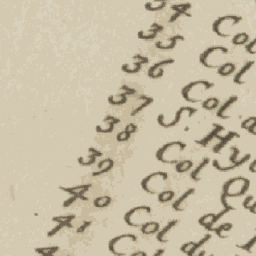 34 Col
35 Col
36 Col
37 S. Hy
38 Col Qu
39 Col de
40 Col du
41 Col